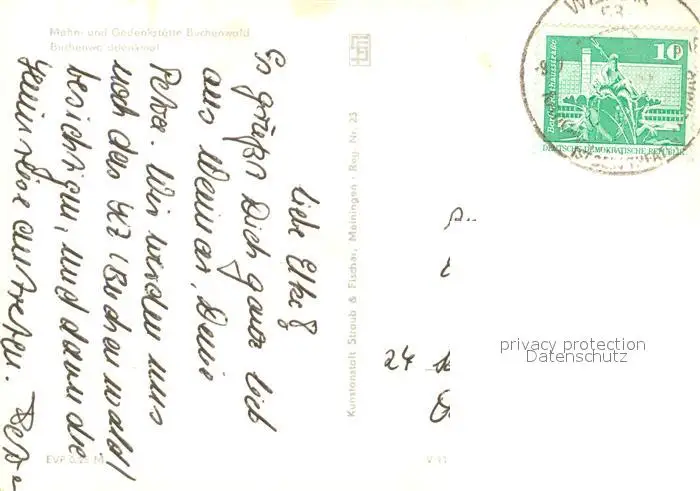 Mahn- und Gedenkstätte Buchenwald
Buchenwalddenkmal
Liebe Elke!
Es grüßt Dich ganz lieb
aus Weimar, Deine
Petra. Wir werden uns
noch das KZ (Buchenwald)
besichtigen, und dann die
Heimreise antreten. Petra
EVP 0,25 M
V 11
Kunstanstalt Straub & Fischer, Meiningen · Reg. Nr. 23
10
Berlin, Rathausstraße
DEUTSCHE DEMOKRATISCHE REPUBLIK
53
24
privacy protection
Datenschutz